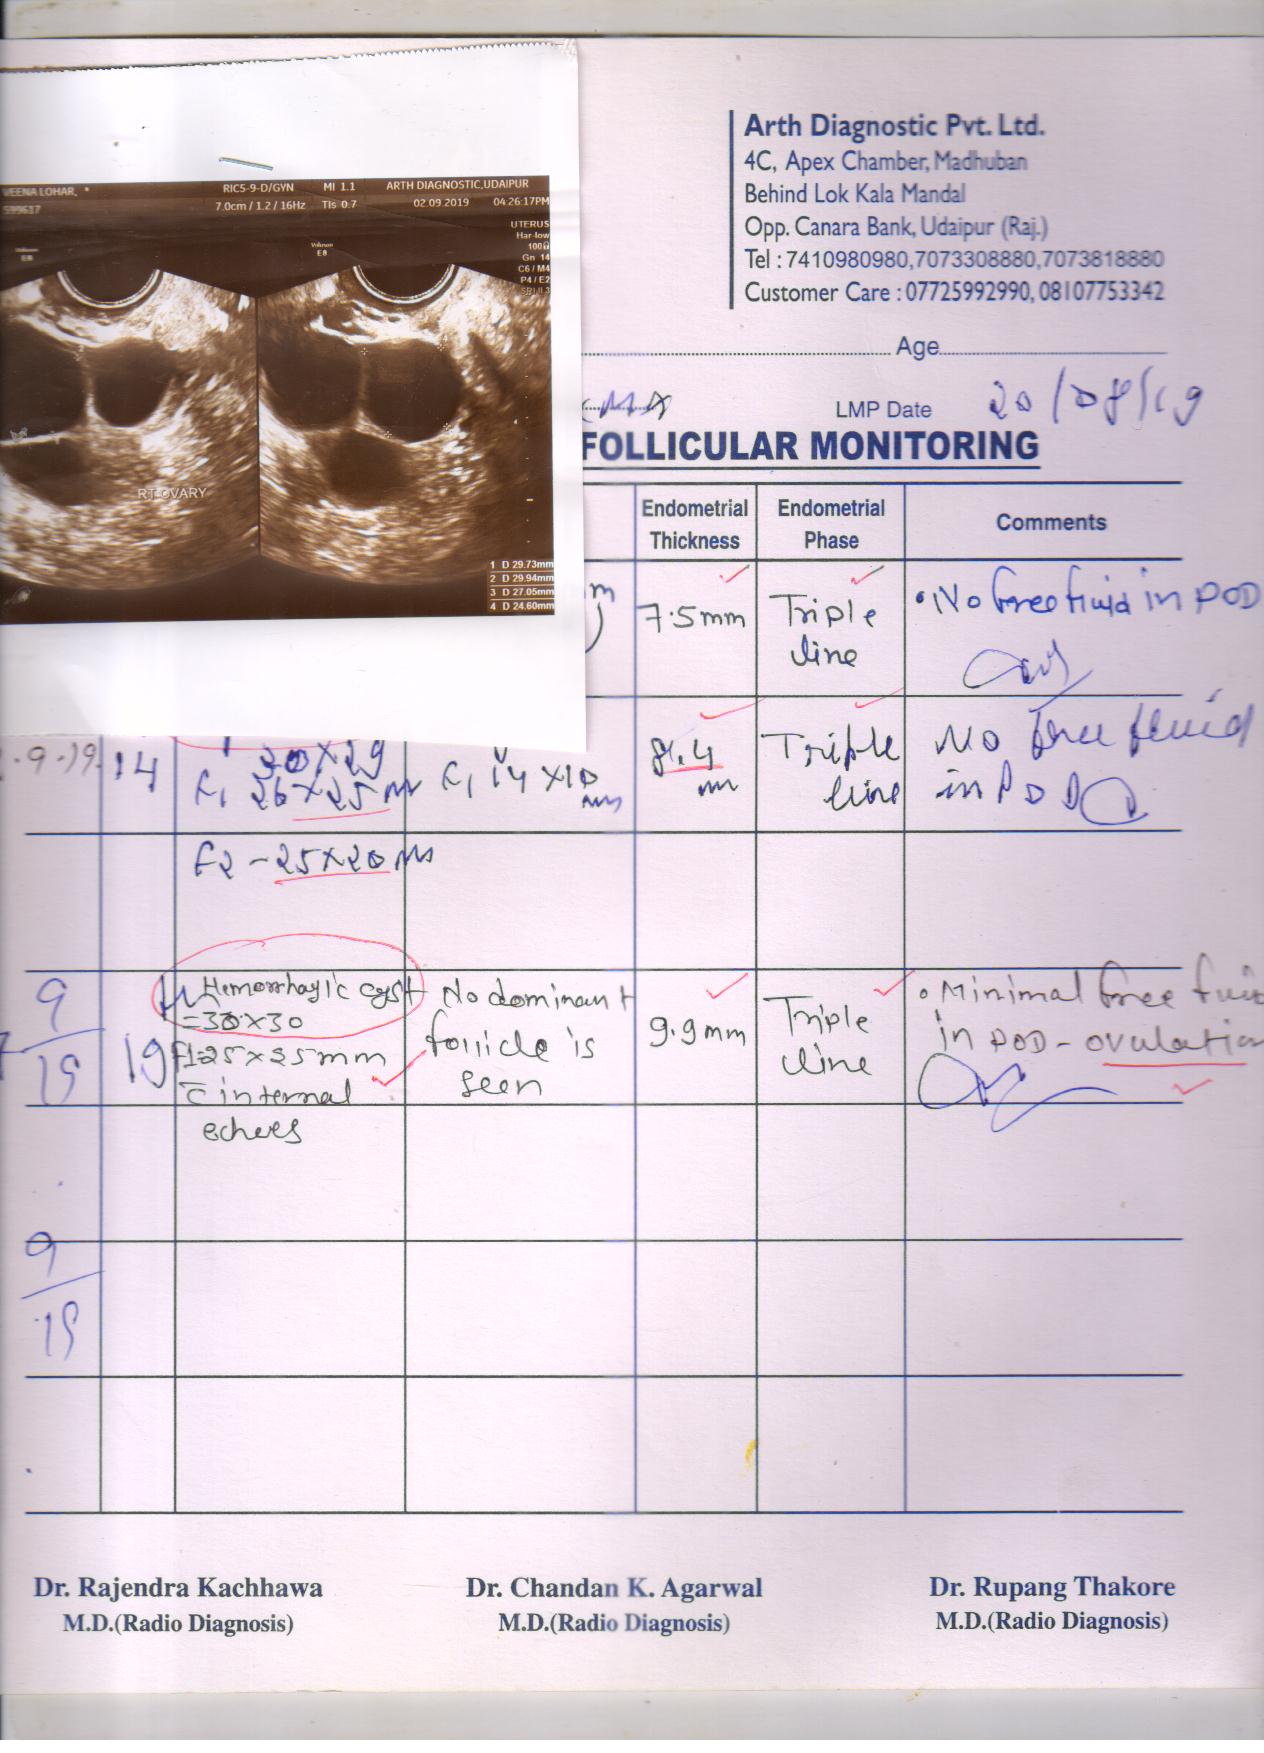 Arth Diagnostic Pvt. Ltd.
4C, Apex Chamber, Madhuban
Behind Lok Kala Mandal
Opp. Canara Bank, Udaipur (Raj.)
Tel : 7410980980,7073308880,7073818880
Customer Care : 07725992990, 08107753342
VEENA LOHAR, *
599617
RIC5-9-D/GYN MI 1.1 ARTH DIAGNOSTIC,UDAIPUR
7.0cm / 1.2 / 16Hz TIs 0.7 02.09.2019 04:26:17PM
UTERUS
Har-low
100
Gn 14
C6 / M4
P4 / E2
SRI II 3
Voluson
E8
Voluson
E8
RT OVARY
1 D 29.73mm
2 D 29.94mm
3 D 27.05mm
4 D 24.60mm
Age
LMP Date 20/08/19
FOLLICULAR MONITORING
Endometrial Thickness
Endometrial Phase
Comments
m
7.5mm
Triple
line
• No free fluid in POD
9.19. 14
30 x 29
F1 26 x 25 m
F1 14 x 10
mm
8.4
mm
Triple
line
No free fluid
in POD
F2 - 25 x 20 m
9
19
19
Hemorrhagic cyst
= 30 x 30
F1 25 x 25 mm
c̄ internal
echoes
No dominant
follicle is
seen
9.9mm
Triple
line
• Minimal free
in POD - ovulation
9
19
Dr. Rajendra Kachhawa
M.D.(Radio Diagnosis)
Dr. Chandan K. Agarwal
M.D.(Radio Diagnosis)
Dr. Rupang Thakore
M.D.(Radio Diagnosis)